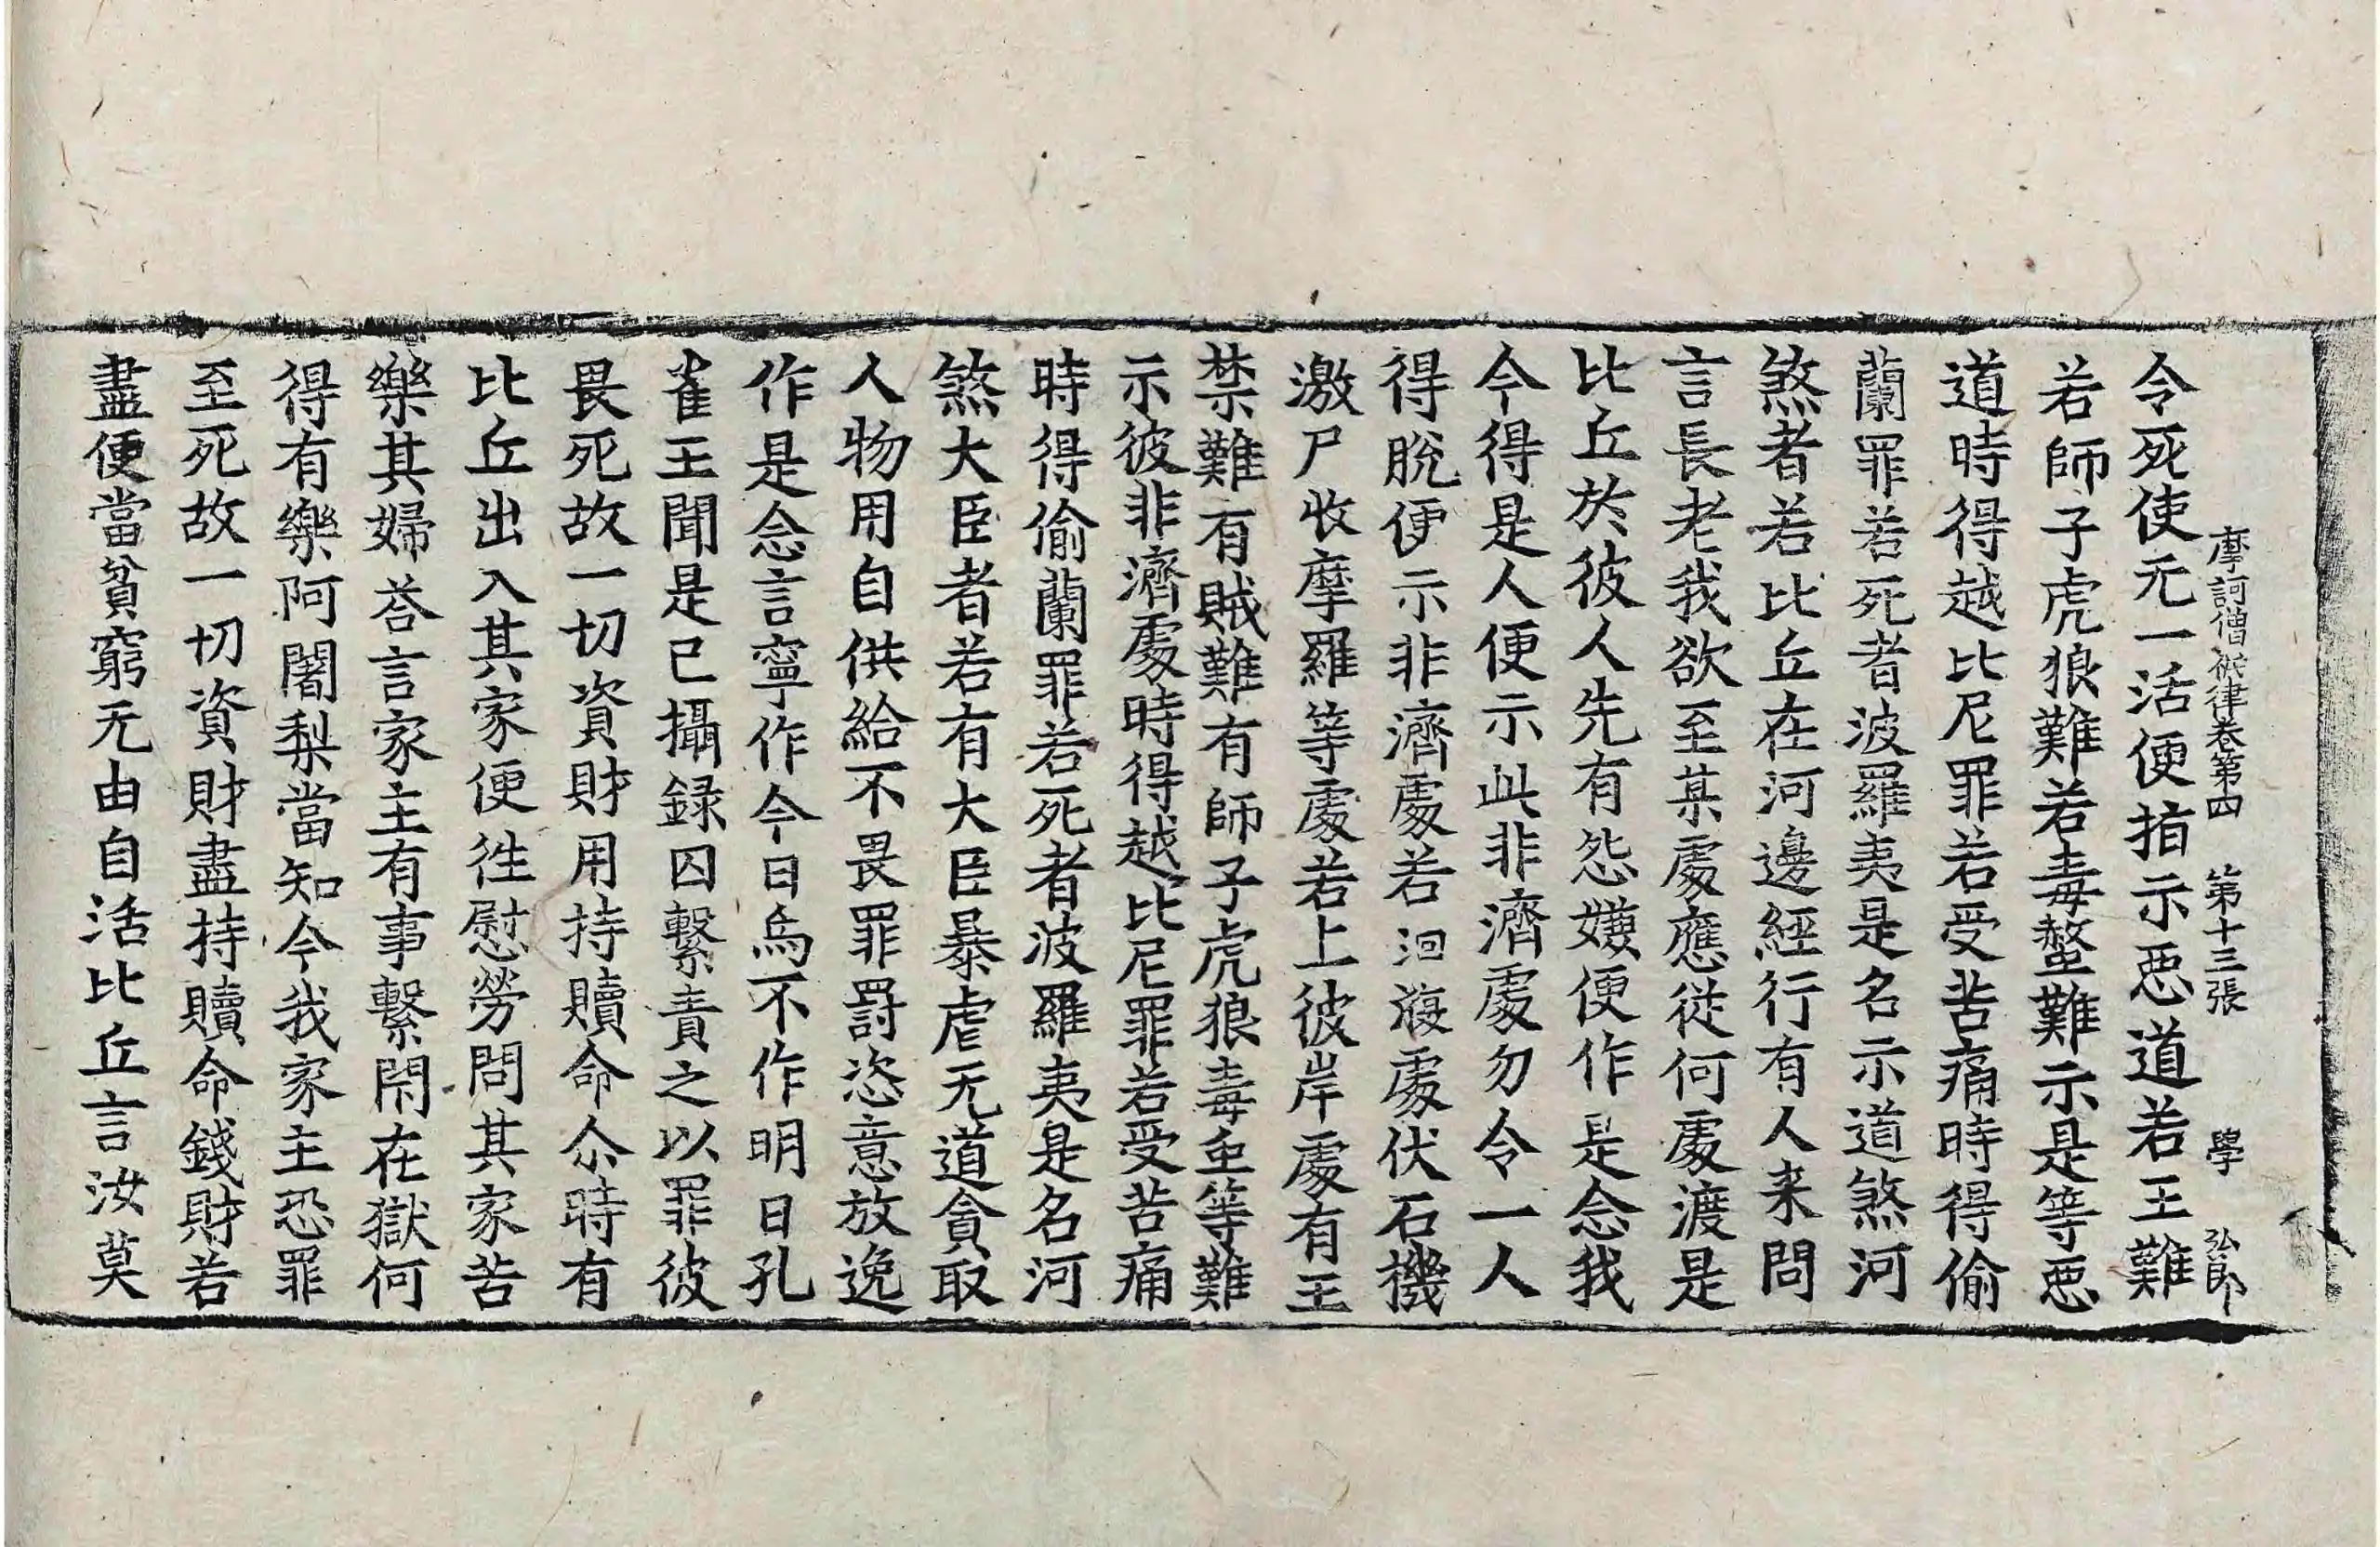 摩訶僧祇律卷第四 第十三張 學 弘郎
令死使无一活便指示惡道若王難
若師子虎狼難若毒螫難示是等惡
道時得越比尼罪若受苦痛時得偷
蘭罪若死者波羅夷是名示道煞河
煞者若比丘在河邊經行有人来問
言長老我欲至某處應從何處渡是
比丘於彼人先有怨嫌便作是念我
今得是人便示此非濟處勿令一人
得脫便示非濟處若洄澓處伏石機
激尸收摩羅等處若上彼岸處有王
禁難有賊難有師子虎狼毒虫等難
示彼非濟處時得越比尼罪若受苦痛
時得偷蘭罪若死者波羅夷是名河
煞大臣者若有大臣暴虐无道貪取
人物用自供給不畏罪罸恣意放逸
作是念言寧作今日烏不作明日孔
雀王聞是已攝録囚繫責之以罪彼
畏死故一切資財用持贖命尒時有
比丘出入其家便往慰勞問其家苦
樂其婦荅言家主有事繫閇在獄何
得有樂阿闍梨當知今我家主恐罪
至死故一切資財盡持贖命錢財若
盡便當貧窮无由自活比丘言汝莫